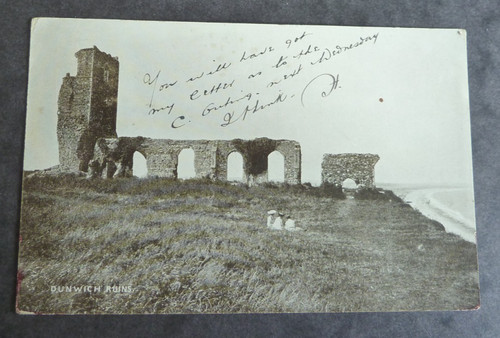 You will have got
my letter as to the
C. Outing, next Wednesday
I think.
DUNWICH RUINS.